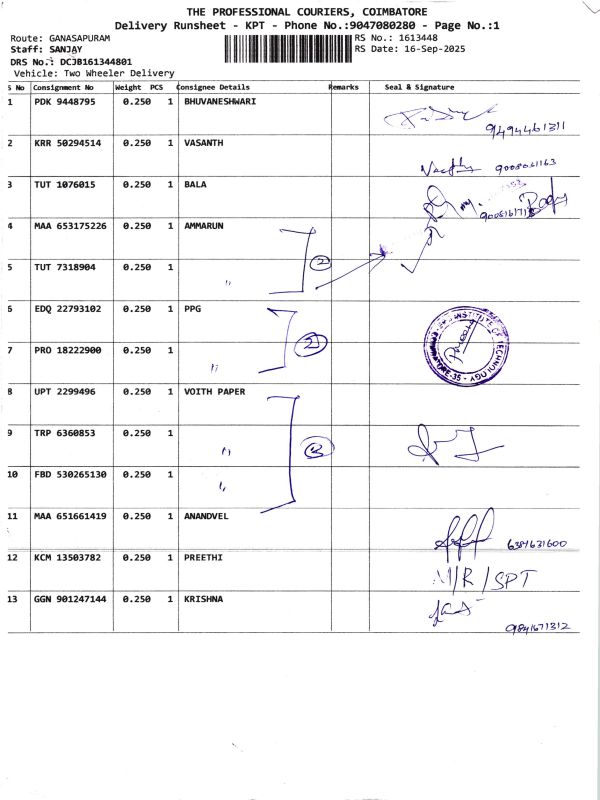 THE PROFESSIONAL COURIERS, COIMBATORE
Delivery Runsheet - KPT - Phone No.:9047080280 - Page No.:1
Route: GANASAPURAM RS No.: 1613448
Staff: SANJAY RS Date: 16-Sep-2025
DRS No.: DCJB161344801
Vehicle: Two Wheeler Delivery
S No Consignment No Weight PCS Consignee Details Remarks Seal & Signature
1 PDK 9448795 0.250 1 BHUVANESHWARI
9494461311
2 KRR 50294514 0.250 1 VASANTH
3 TUT 1076015 0.250 1 BALA
4 MAA 653175226 0.250 1 AMMARUN
5 TUT 7318904 0.250 1 "
2
6 EDQ 22793102 0.250 1 PPG
7 PRO 18222900 0.250 1 "
INSTITUTE OF TECHNOLOGY
8 UPT 2299496 0.250 1 VOITH PAPER
9 TRP 6360853 0.250 1 "
10 FBD 530265130 0.250 1 "
11 MAA 651661419 0.250 1 ANANDVEL
6384631600
12 KCM 13503782 0.250 1 PREETHI
M/R/SPT
13 GGN 901247144 0.250 1 KRISHNA
9841671312